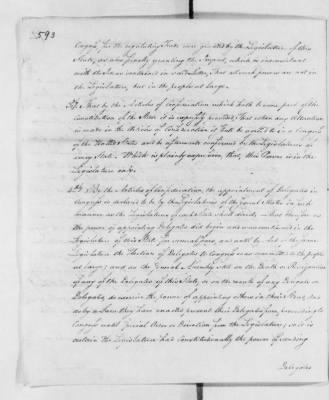 593
Congress, for regulating Trade were granted by the Legislature of this
State, as also finally granting the Impost, which is inconsistent
with the Ideas contained in said Letter, That all such powers are not in
the Legislature, but in the people at large.
3dly That by the Articles of Confederation which hath become part of the
Constitution of the State it is expressly provided, That when any Alteration
is made in the Articles of Confederation it shall be agreed to in a Congress
of the United States and be afterwards confirmed by the Legislatures of
every State. Which is plainly expressive, that, this Power is in the
Legislature only.
4thly By the Articles of Confederation, the appointment of Delegates in
Congress is declared to be by the Legislatures of the several States in such
manner as the Legislature of each State shall direct
the power of appointing Delegates did begin and was continued in the
Legislature of this State for several years, and until by Act of the same
Legislature the Election of Delegates to Congress was committed to the people
at large; and as the General Assembly still on the Death or Resignation
of any of the Delegates of this State, or on the recall of any Delegate or
Delegates do exercise the power of appointing others in their Stead, and
as by a Law they have enacted prevent their Delegates from proceeding to
Congress until special Order or Direction from the Legislature; so it is
certain the Legislature has Constitutionally the power of sending
Delegates